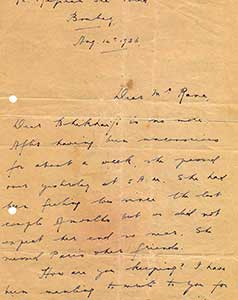 Bombay
Aug 14th 1936
Dear Mr Rana,
Dear Bhikhaiji is no more.
After having been unconscious
for about a week, she passed
away yesterday at 5 A.M. She had
been feeling low since the last
couple of months but we did not
expect her end so near. She
missed Paris & her friends.
How are you keeping? I have
been meaning to write to you for